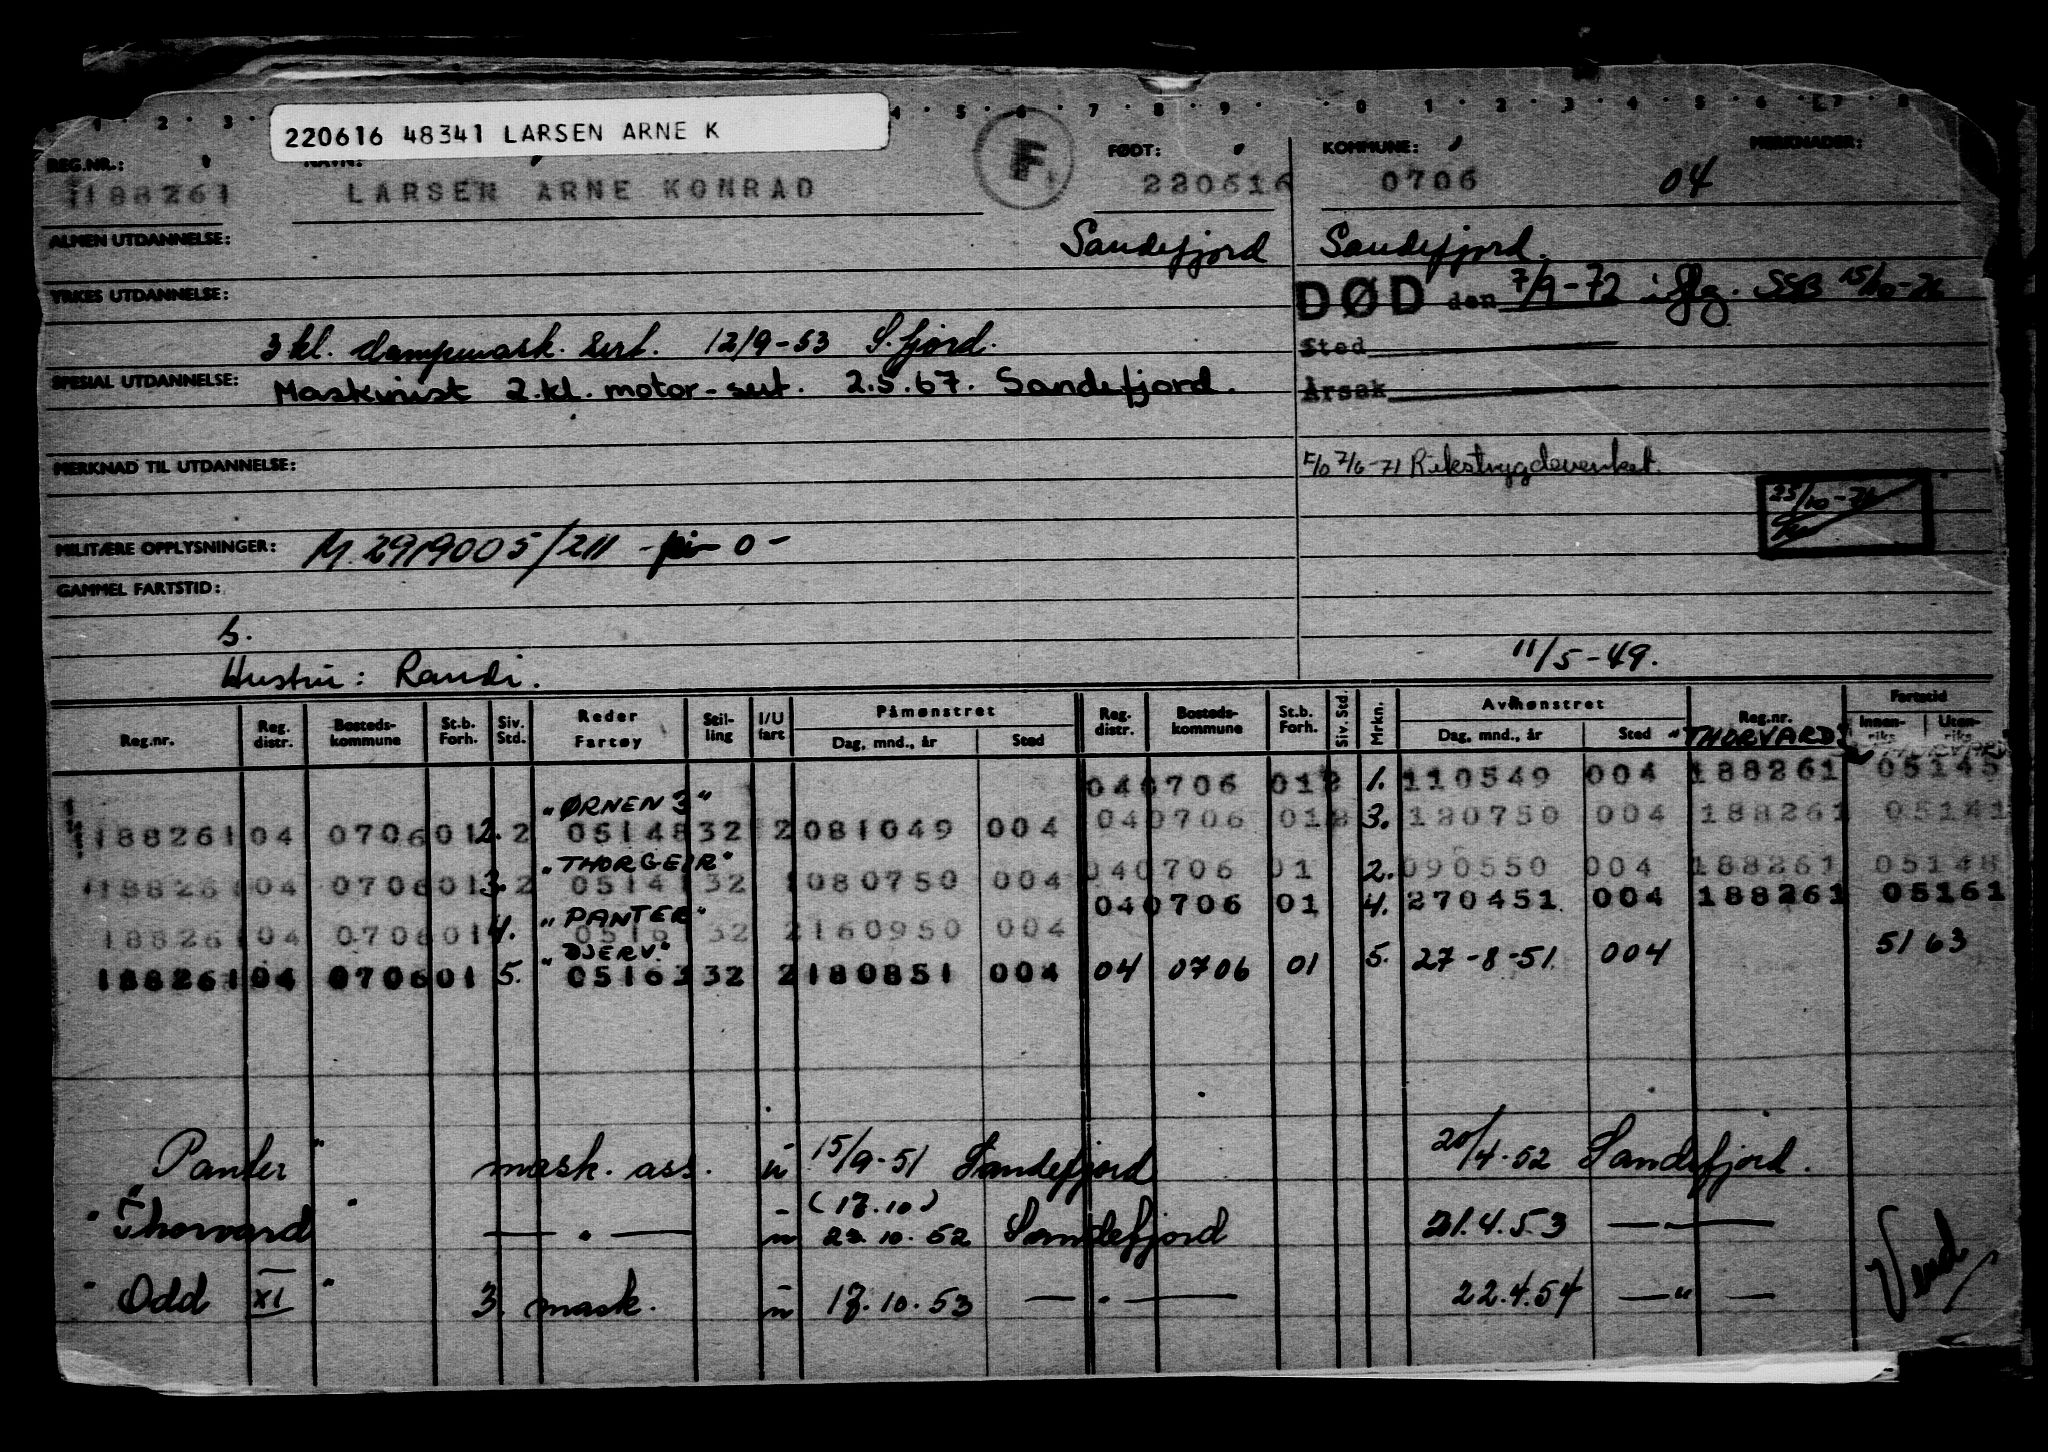 220616 48341 LARSEN ARNE K
REG.NR.: NAVN: FØDT: KOMMUNE: MERKNADER:
188261 LARSEN ARNE KONRAD F 220616 0706 04
ALMEN UTDANNELSE: Sandefjord Sandefjord.
YRKES UTDANNELSE: DØD den 7/9-72 iflg. SSB
3 kl. dampmask. sert. 12/9-53 S.fjord. Sted
SPESIAL UTDANNELSE: Maskinist 2.kl. motor-sert. 2.5.67. Sandefjord. Årsak
MERKNAD TIL UTDANNELSE: F/O 7/6-71 Rikstrygdeverket.
MILITÆRE OPPLYSNINGER: M. 2919005/211 - 0 -
GAMMEL FARTSTID:
S.
Hustru: Randi. 11/5-49.
Reg.nr. Reg. distr. Bosteds-kommune St.b. Forh. Siv. Std. Reder Fartøy Stil-ling I/U fart Påmønstret Dag, mnd., år Sted Reg. distr. Bosteds-kommune St.b. Forh. Siv. Std. Mrkn. Avmønstret Dag, mnd., år Sted Reg.nr. Fartstid Innen-riks Uten-riks
"THORVARD"
040706 012 1. 110549 004 188261 05145
"ØRNEN 3"
188261 04 0706 01 2. 2 05148 32 2 081049 004 040706 018 3. 180750 004 188261 05141
"THORGEIR"
188261 04 0706 01 3. 2 05141 32 1 080750 004 040706 01 2. 090550 004 188261 05148
"PANTER"
188261 04 0706 01 4. 05161 32 2 160950 004 040706 01 4. 270451 004 188261 05161
"DJERV."
188261 04 0706 01 5. 05163 32 2 180851 004 04 0706 01 5. 27-8-51. 004 5163
"Panter" mask. ass. u 15/9-51 Sandefjord 20/4-52 Sandefjord.
(17.10)
"Thorvard" — " — u 22.10.52 Sandefjord 21.4.53 — " —
"Odd XI" 3. mask. u 17.10.53 — " — 22.4.54 — " —
Vend